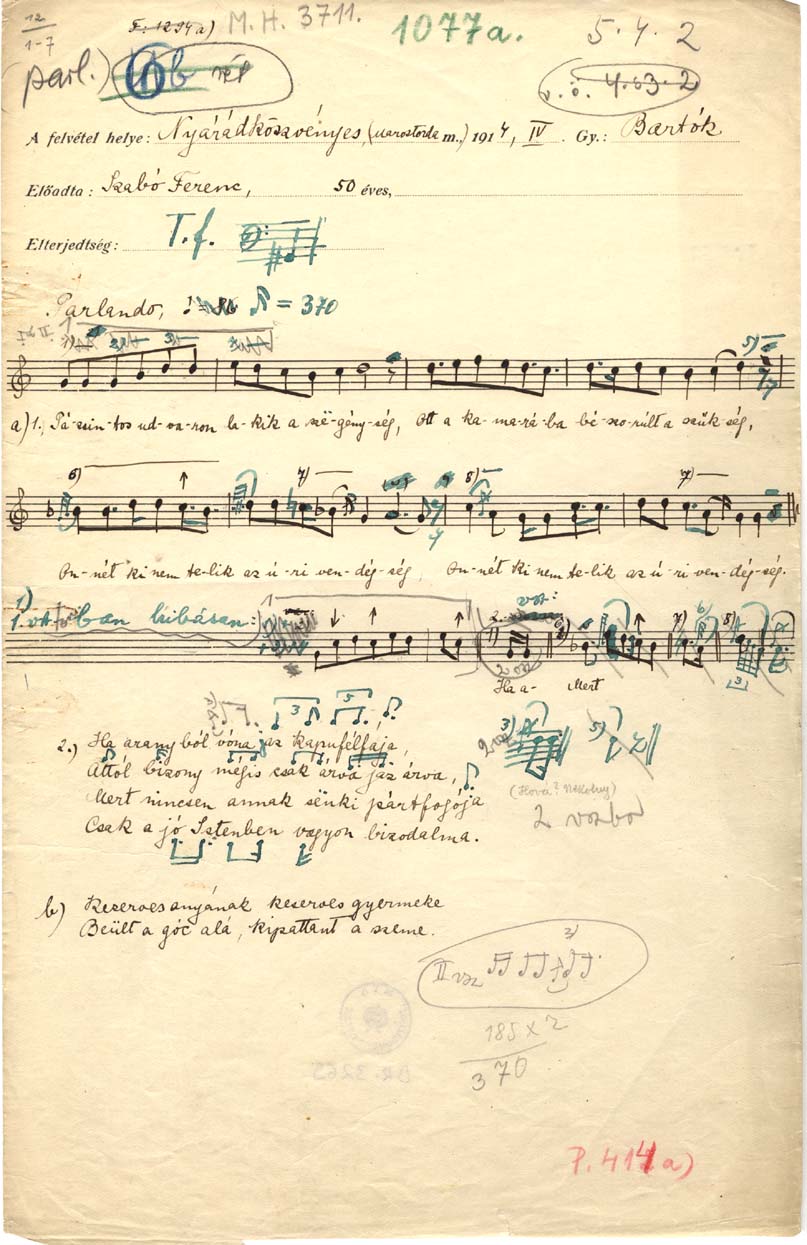 12
1-7
F. 1294a) M. H. 3711. 1077a. 5. 4. 2
parl.)
v. ö. 4.63.2
A felvétel helye: Nyárádköszvényes, (Marostorda m.,) 1914, IV. Gy.: Bartók
Előadta: Szabó Ferenc, 50 éves,
Elterjedtség: T. f.
Parlando, = 370
a) 1., Pá-zsin-tos ud-va-ron la-kik a szë-gény-ség, Ott a ka-ma-rá-ba bé-szo-rúlt a szűk-ség,
On-nét ki nem te-lik az ú-ri ven-dég-ség, On-nét ki nem te-lik az ú-ri ven-dég-ség.
Ha a- Mert
2.) Ha aranyból vóna jaz kapufélfája,
Attól bizony mégis csak árva jaz árva,
Mert nincsen annak sënki pártfogója
Csak a jó Istenben vagyon bizodalma.
2 vszban
b) Keservesanyának keserves gyermeke
Beült a góc alá, kipattant a szeme.
II vsz
185 x 2
370
P. 414 a)